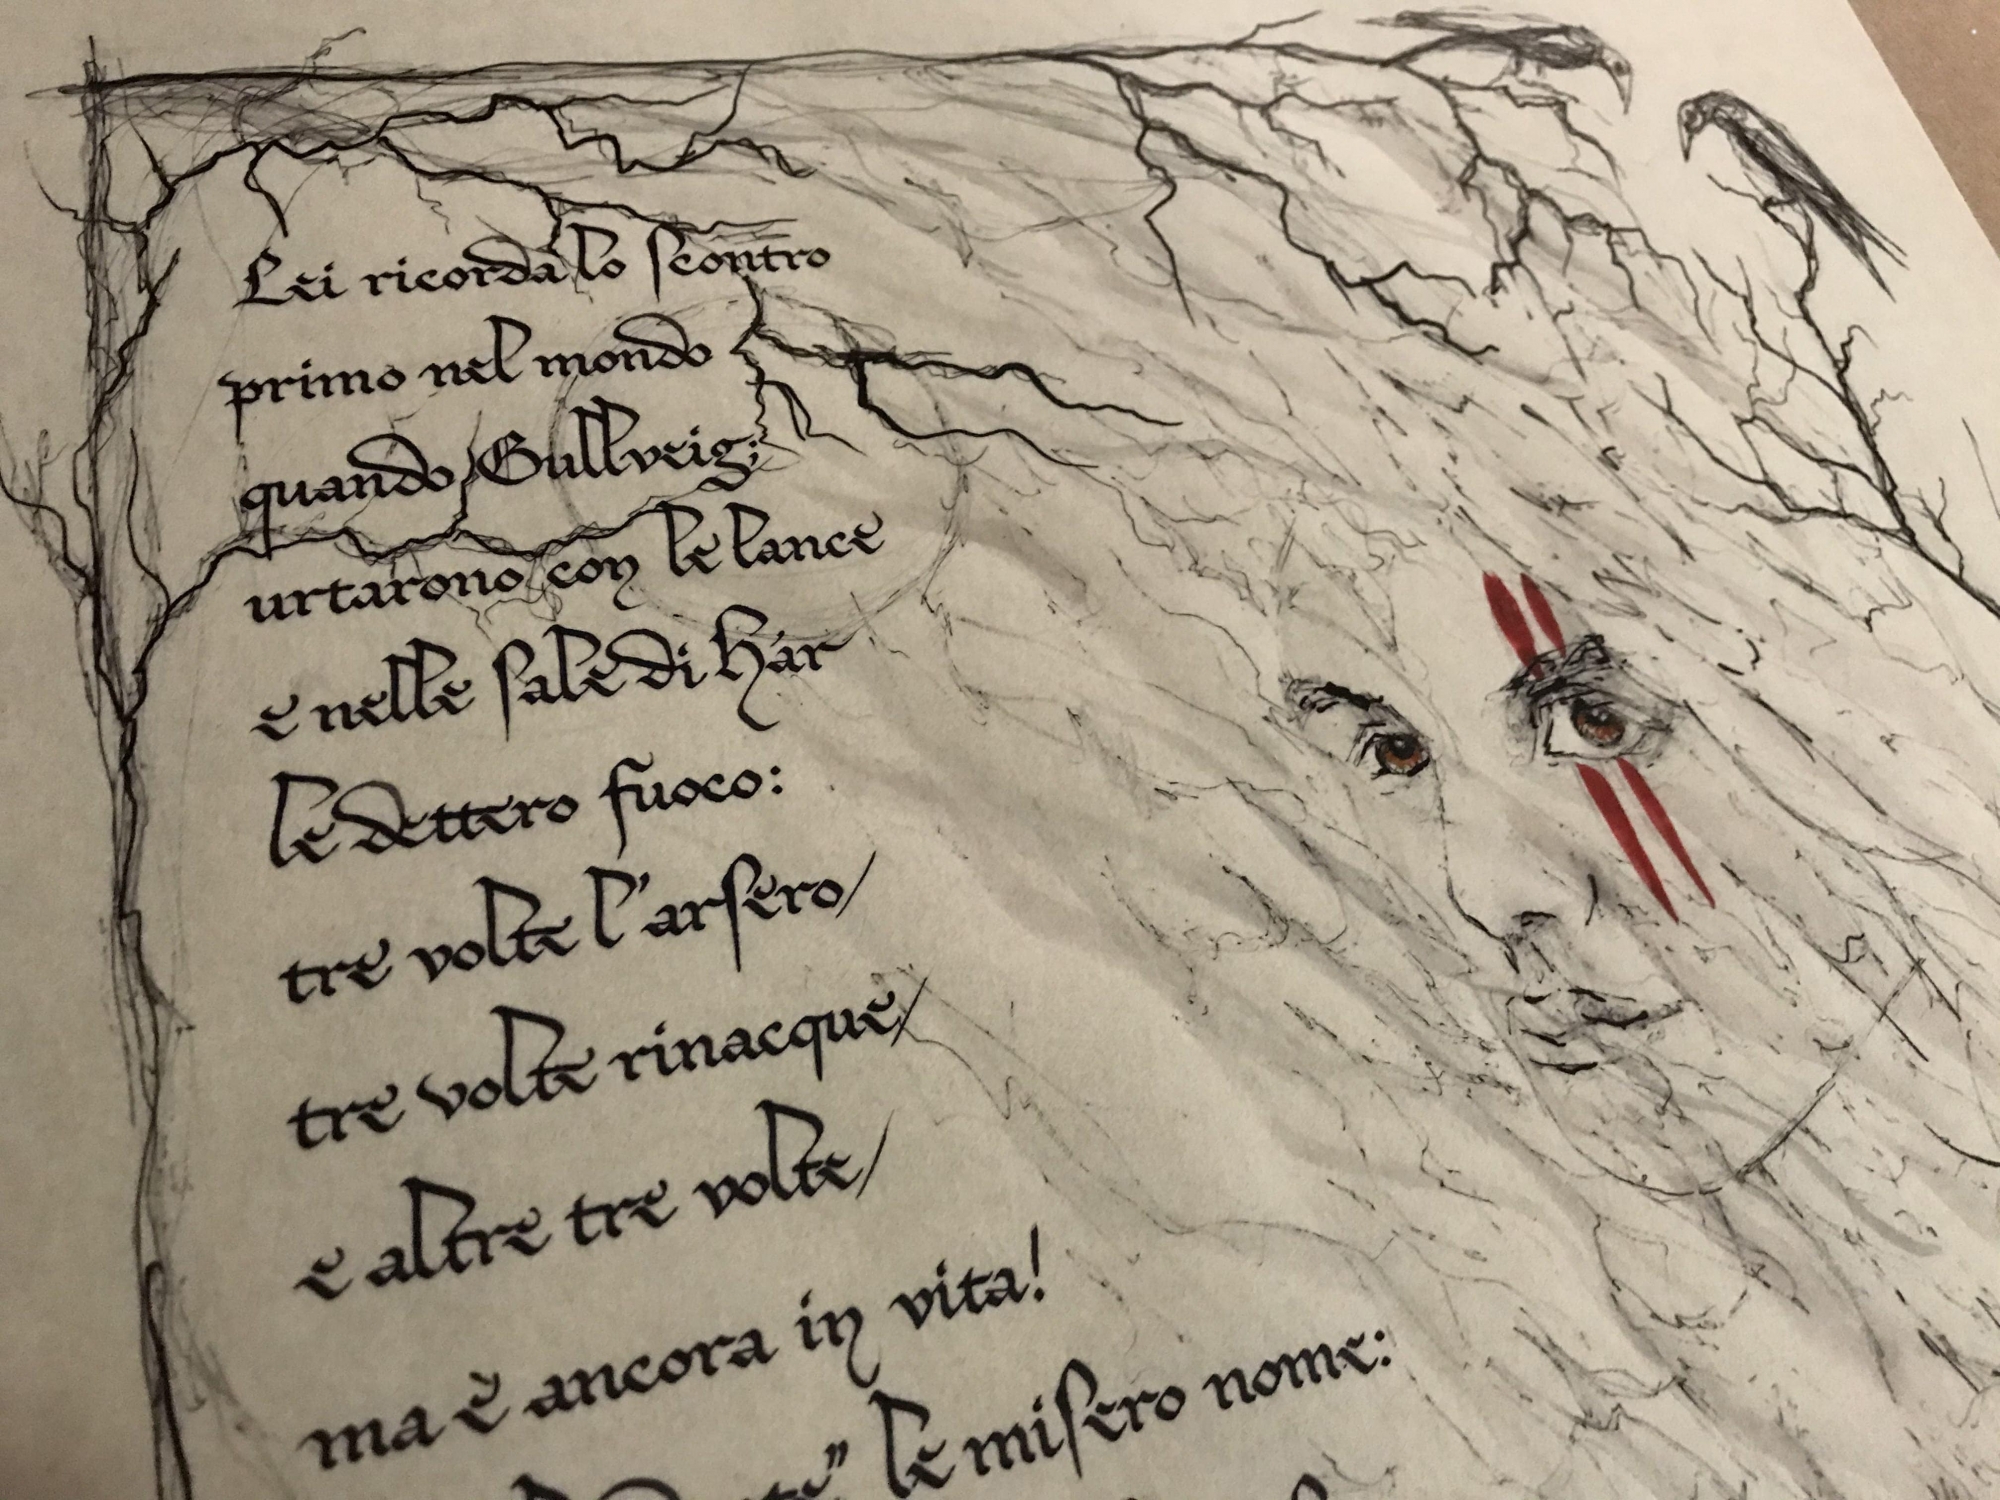 Lei ricorda lo scontro
primo nel mondo
quando Gullveig;
urtarono con le lance
e nelle sale di Hár
le dettero fuoco:
tre volte l'arsero/
tre volte rinacque/
e altre tre volte/
ma è ancora in vita!
" le misero nome: